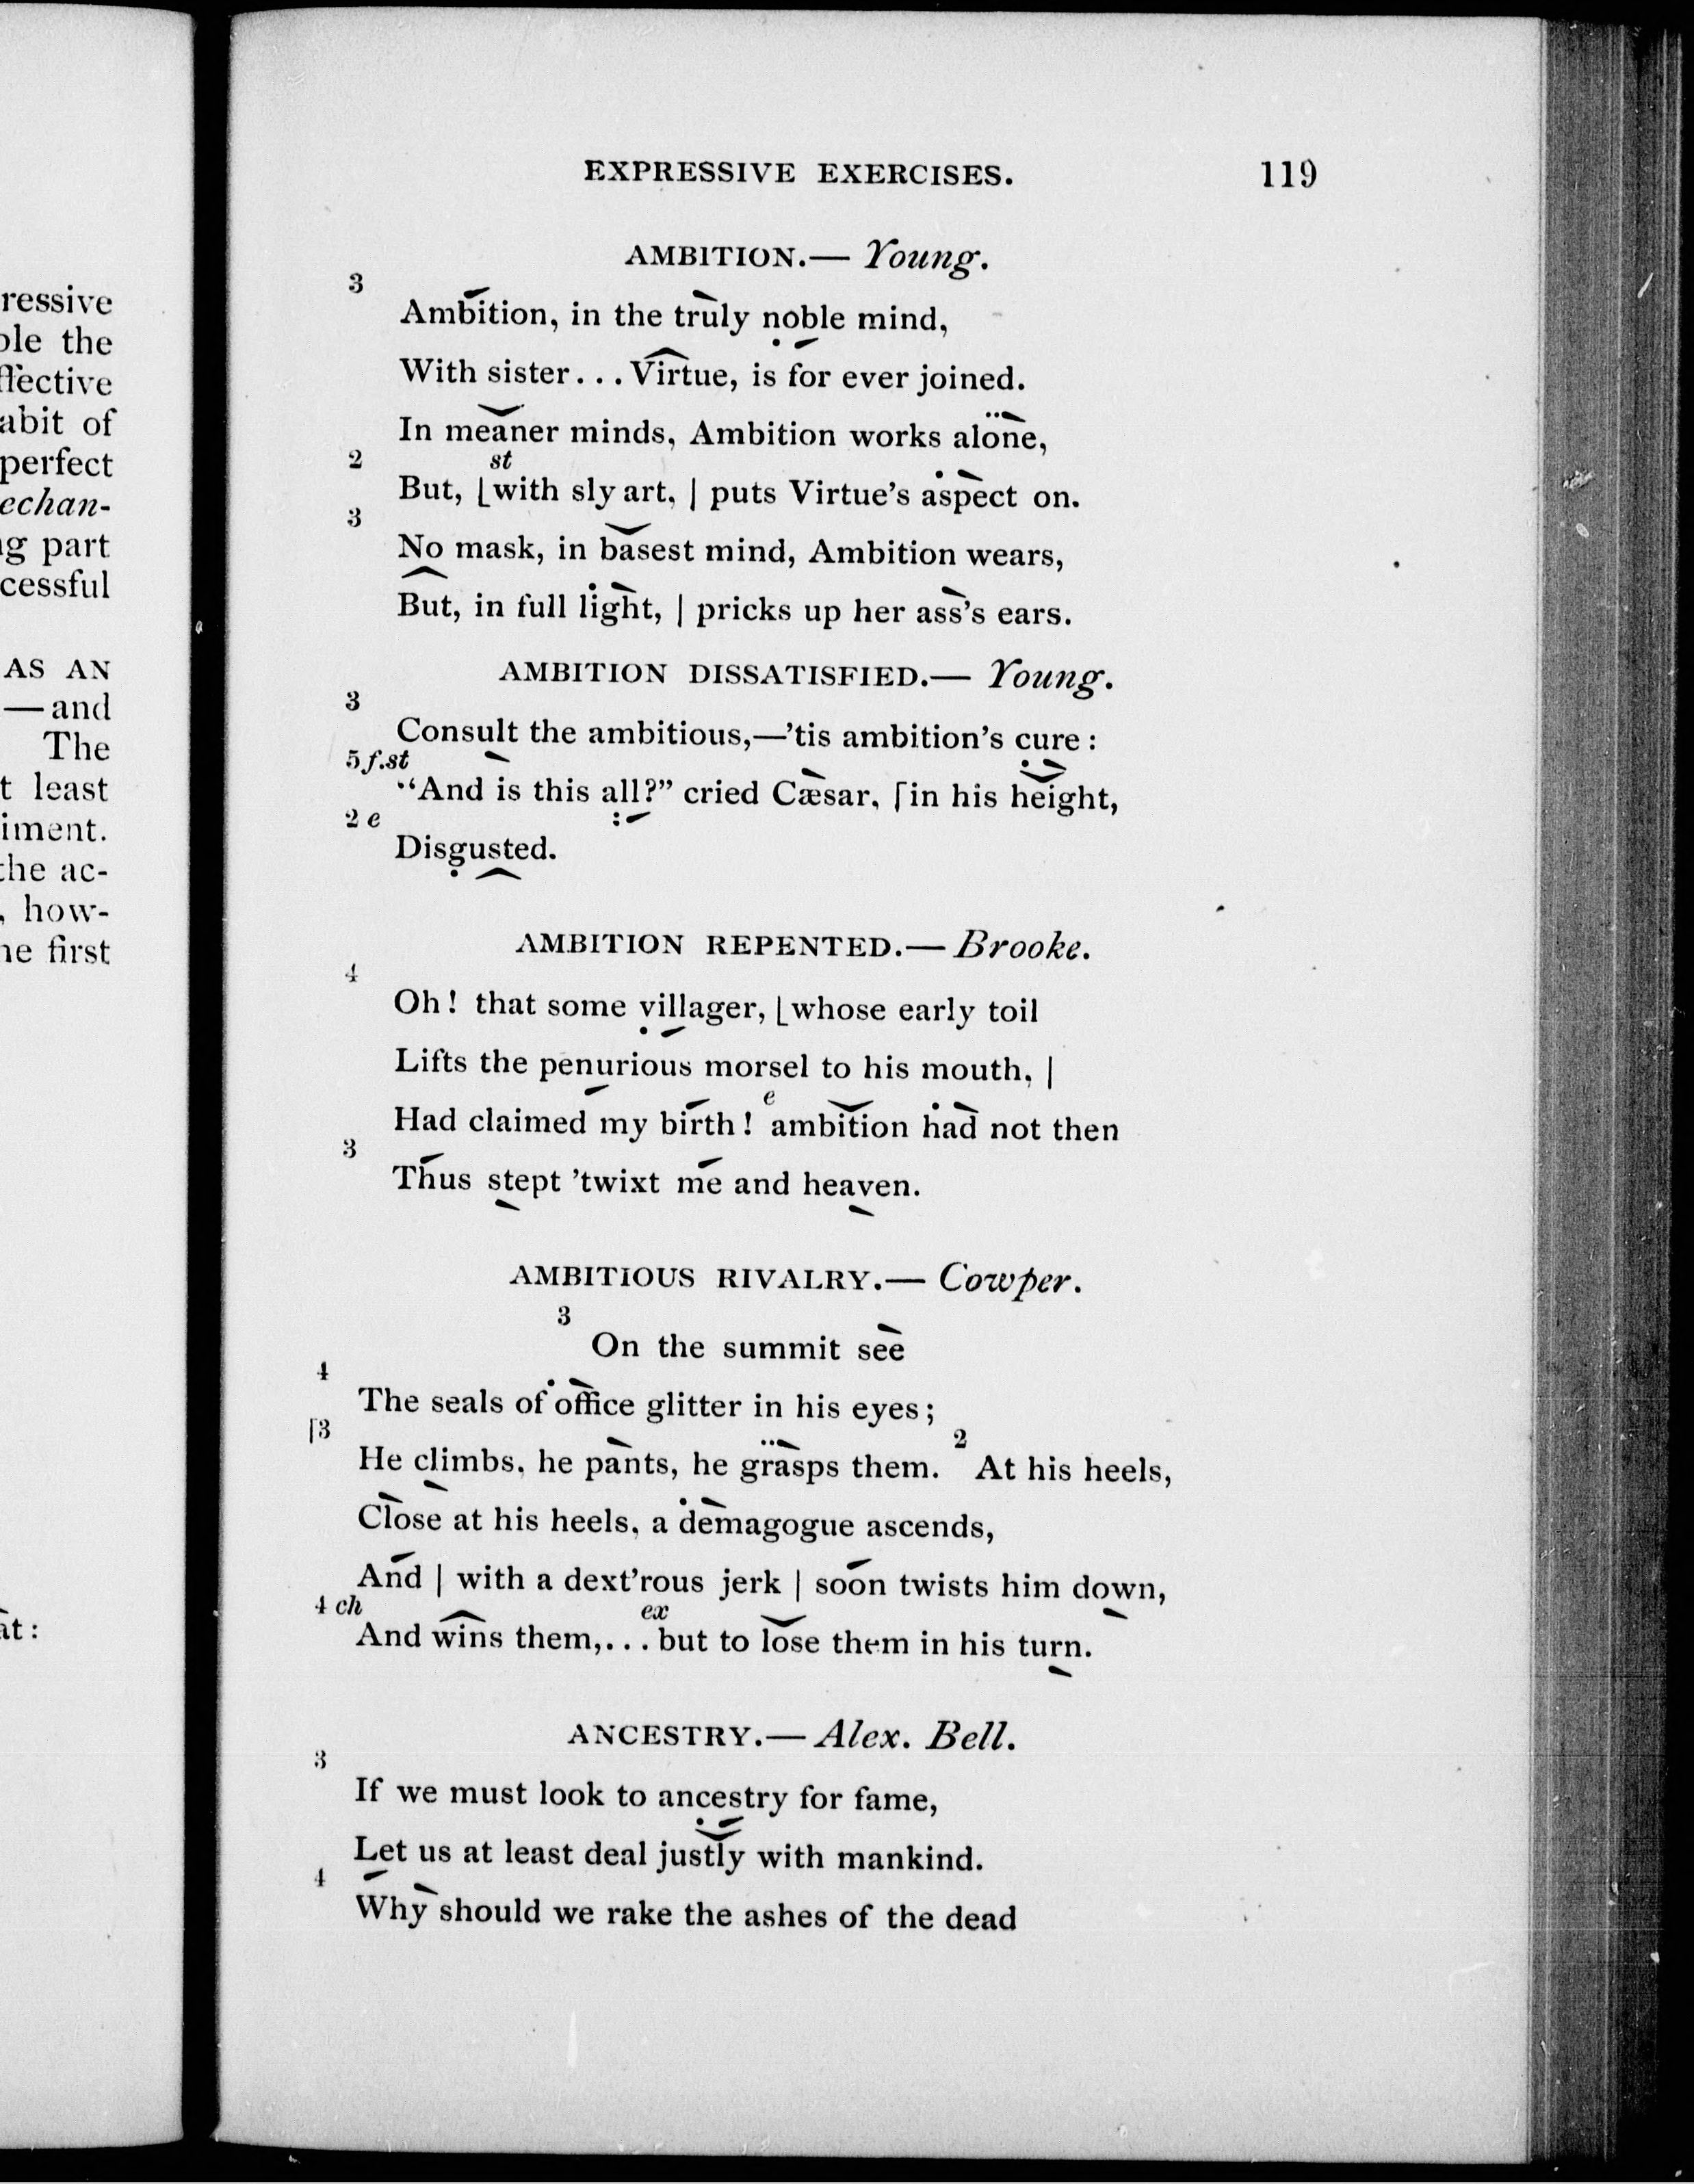 ressive
ble the
flective
abit of
perfect
echan-
ng part
cessful
AS AN
—and
The
t least
iment.
the ac-
, how-
he first
at:
EXPRESSIVE EXERCISES. 119
AMBITION.— Young.
3
Ambition, in the truly noble mind,
With sister... Virtue, is for ever joined.
In meaner minds, Ambition works alone,
2 st
But, ⌊with sly art, | puts Virtue's aspect on.
3
No mask, in basest mind, Ambition wears,
But, in full light, | pricks up her ass's ears.
AMBITION DISSATISFIED.— Young.
3
Consult the ambitious,—'tis ambition's cure:
5 f.st
"And is this all?" cried Cæsar, ⌈in his height,
2 e
Disgusted.
AMBITION REPENTED.— Brooke.
4
Oh! that some villager, ⌊whose early toil
Lifts the penurious morsel to his mouth, |
e
Had claimed my birth! ambition had not then
3
Thus stept 'twixt me and heaven.
AMBITIOUS RIVALRY.— Cowper.
3
On the summit see
4
The seals of office glitter in his eyes;
⌈3 2
He climbs, he pants, he grasps them. At his heels,
Close at his heels, a demagogue ascends,
And | with a dext'rous jerk | soon twists him down,
4 ch ex
And wins them,... but to lose them in his turn.
ANCESTRY.— Alex. Bell.
3
If we must look to ancestry for fame,
Let us at least deal justly with mankind.
4
Why should we rake the ashes of the dead